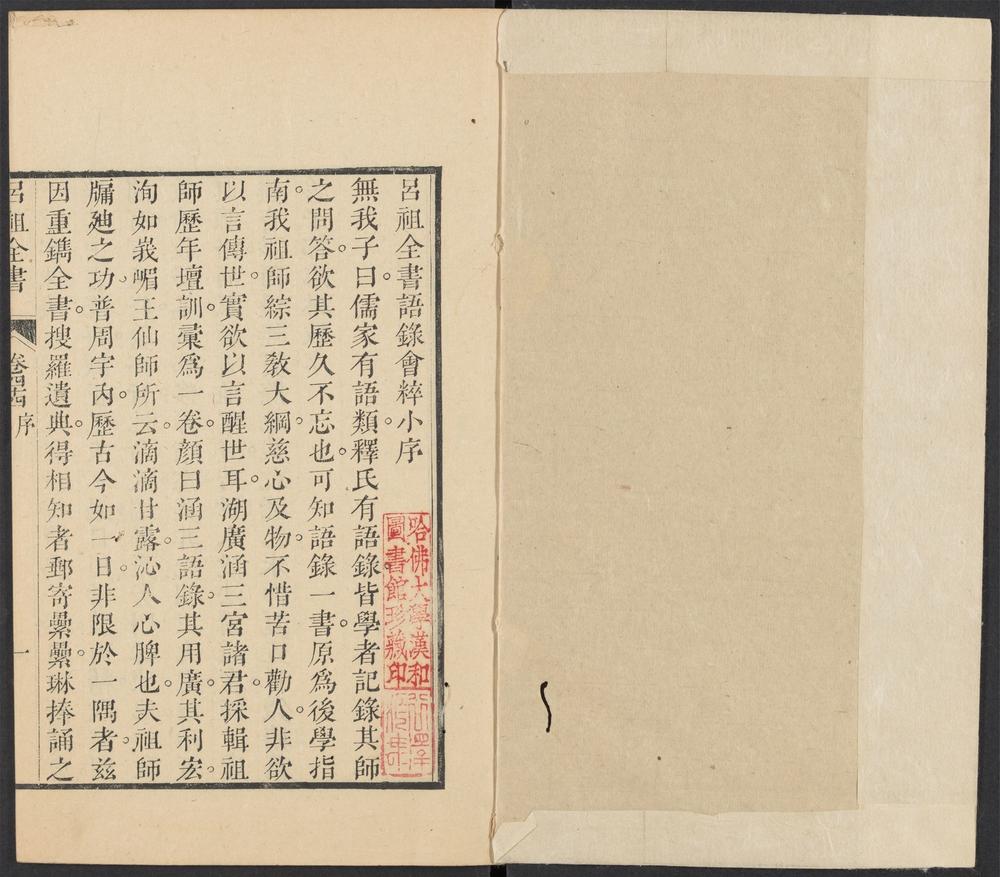 呂祖全書語錄會粹小序
無我子曰儒家有語類釋氏有語錄皆學者記錄其師
之問答欲其歷久不忘也可知語錄一書原爲後學指
南我祖師綜三敎大綱慈心及物不惜苦口勸人非欲
以言傳世實欲以言醒世耳湖廣涵三宮諸君採輯祖
師歷年壇訓彙爲一卷顏曰涵三語錄其用廣其利宏
洵如峩嵋王仙師所云滴滴甘露沁人心脾也夫祖師
牖廸之功普周宇內歷古今如一日非限於一隅者茲
因重鐫全書搜羅遺典得相知者郵寄纍纍琳捧誦之
呂祖全書
卷四四 序
一
哈佛大學漢和
圖書館珍藏印